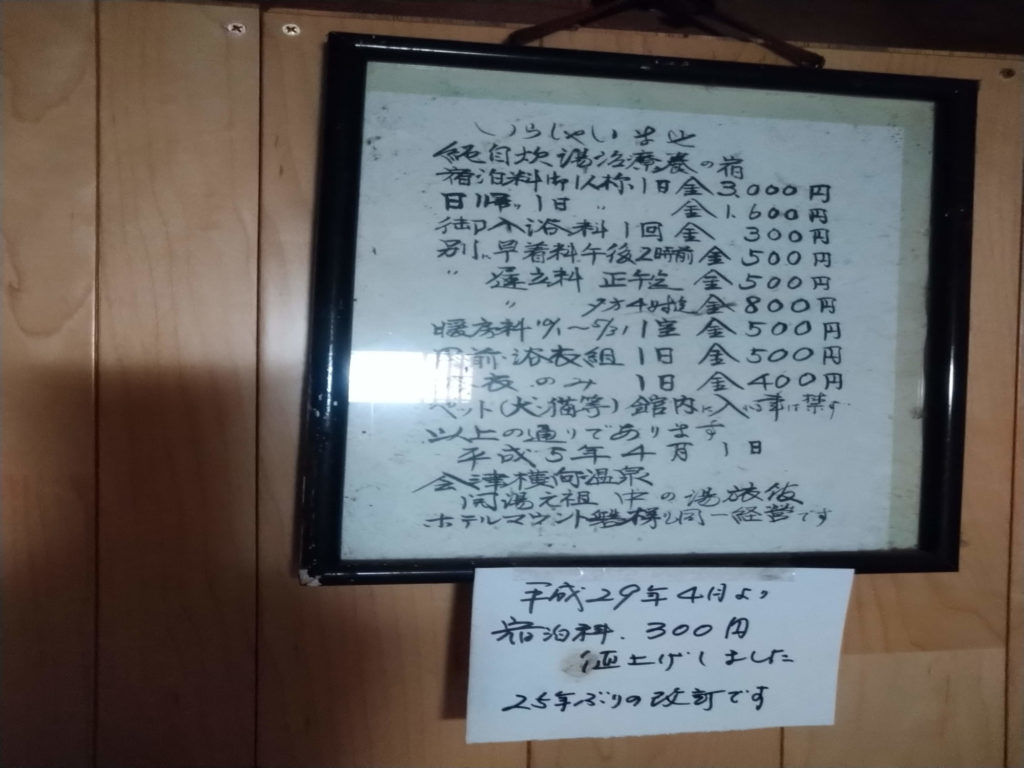 いらっしゃいませ
純自炊湯治療養の宿
宿泊料御1人称1日金3,000円
日帰り1日 〃 金1,600円
御入浴料1回金300円
別に早着料午後2時前金500円
〃 遅立料 正午迄 金500円
〃 夕方4時迄 金800円
暖房料10/1〜5/31 1室 金500円
丹前・浴衣組 1日 金500円
衣のみ 1日 金400円
ペット(犬、猫等)館内に入いる事は禁ず
以上の通りであります
平成5年4月1日
会津横向温泉
開湯元祖 中の湯旅館
ホテルマウント磐梯も同一経営です
平成29年4月より
宿泊料、300円
値上げしました
25年ぶりの改訂です